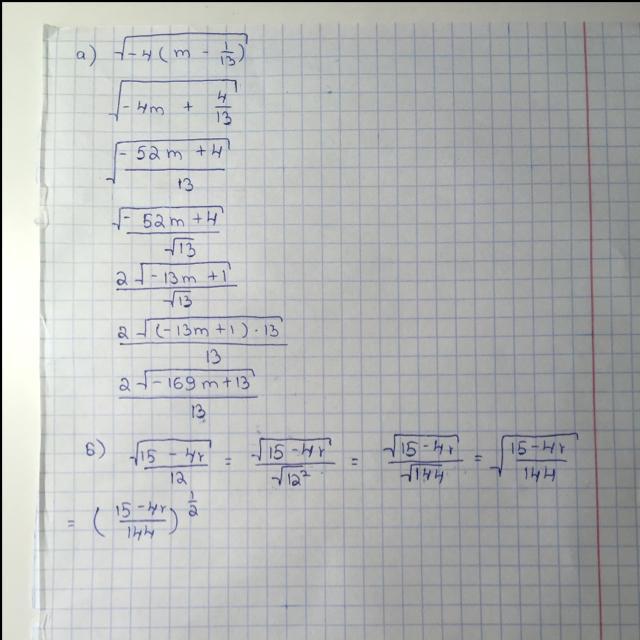 а) √(-4(m - 1/13))
√(-4m + 4/13)
√((-52m + 4)/13)
√(-52m + 4)/√13
2√(-13m + 1)/√13
2√((-13m + 1)·13)/13
2√(-169m + 13)/13
б) √(15 - 4r)/12 = √(15 - 4r)/√12² = √(15 - 4r)/√144 = √((15 - 4r)/144)
= ((15 - 4r)/144)^(1/2)